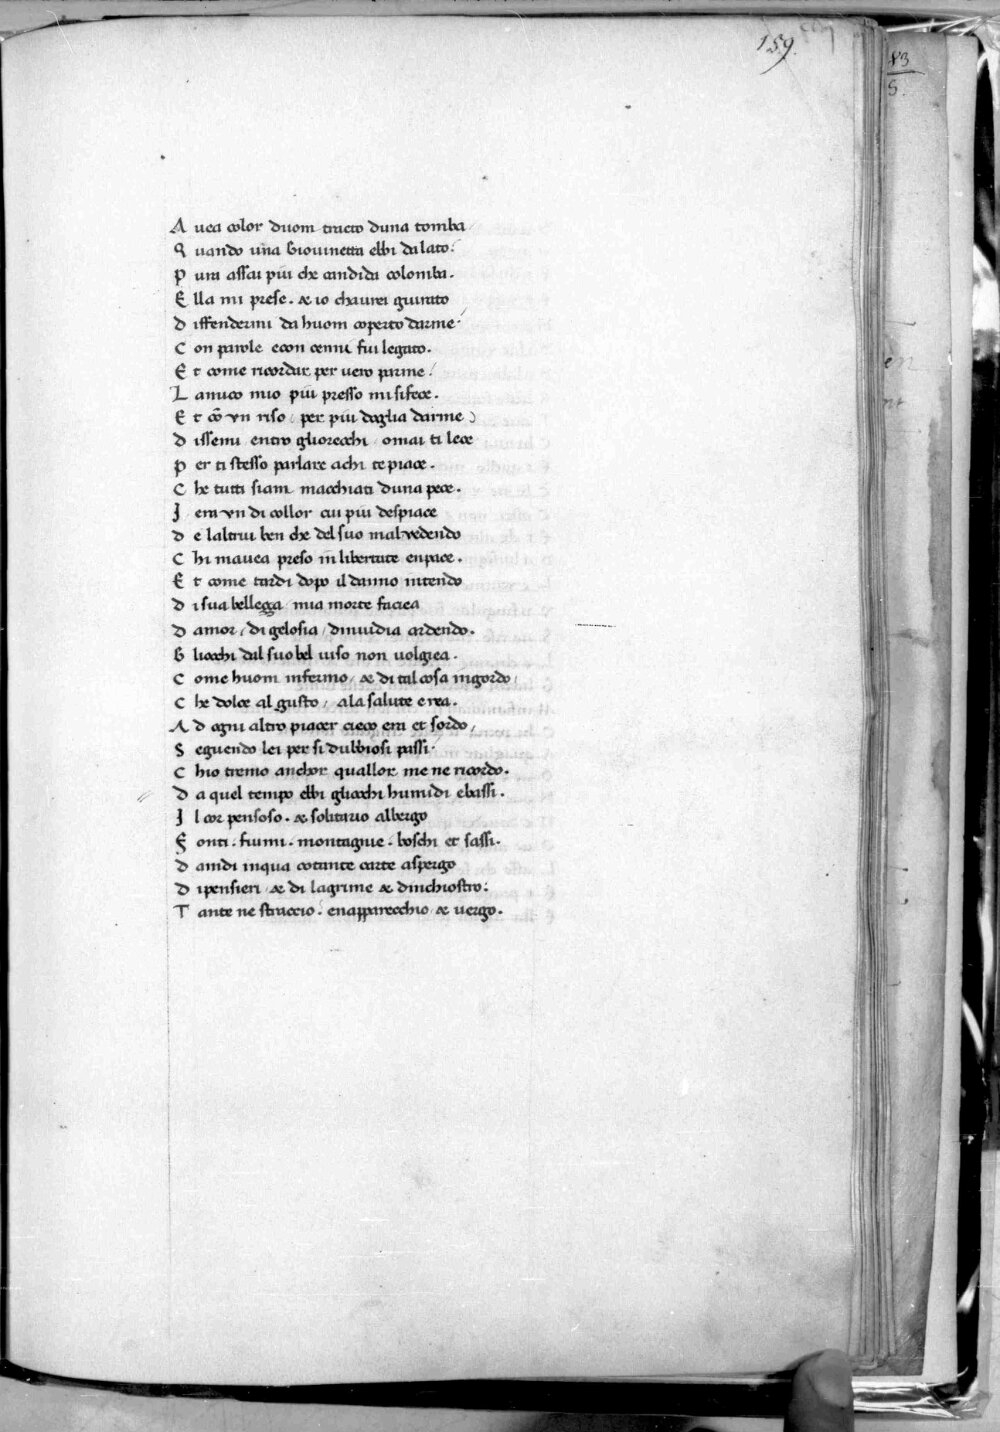 159.
A vea color duom tracto duna tomba
Q uando una Giovinetta ebbi dalato:
P ura assai piu che candida colomba.
E lla mi prese. & io chaurei giurato
D iffendermi da huom coperto darme:
C on parole econ cenni fui legato.
E t come ricordar per vero parme:
L amico mio piu presso mi si fece.
E t cō vn riso / per piu doglia darme)
D issemi entro gliorecchi omai ti lece
P er ti stesso parlare achi te piace.
C he tutti siam macchiati duna pece.
I era vn di collor cui piu despiace
D e laltrui ben che del suo mal vedendo
C hi mauea preso in libertate enpace.
E t come tardi dopo il danno intendo
D i sua bellezza mia morte faciea
D amor / di gelosia / dinuidia ardendo.
G liocchi dal suo bel uiso non uolgiea.
C ome huom infermo / & di tal cosa ingordo
C he dolce al gusto / ala salute e rea.
A d ogni altro piacer cieco era et sordo /
S eguendo lei per si dubbiosi passi:
C hio tremo anchor quallor me ne ricordo.
D a quel tempo ebbi gliocchi humidi ebassi.
I l cor pensoso. & solitario albergo
F onti. fiumi. montagnie. boschi et sassi.
D aindi inqua cotante carte aspergo
D i pensieri & di lagrime & dinchiostro:
T ante ne straccio. enapparecchio & uergo.